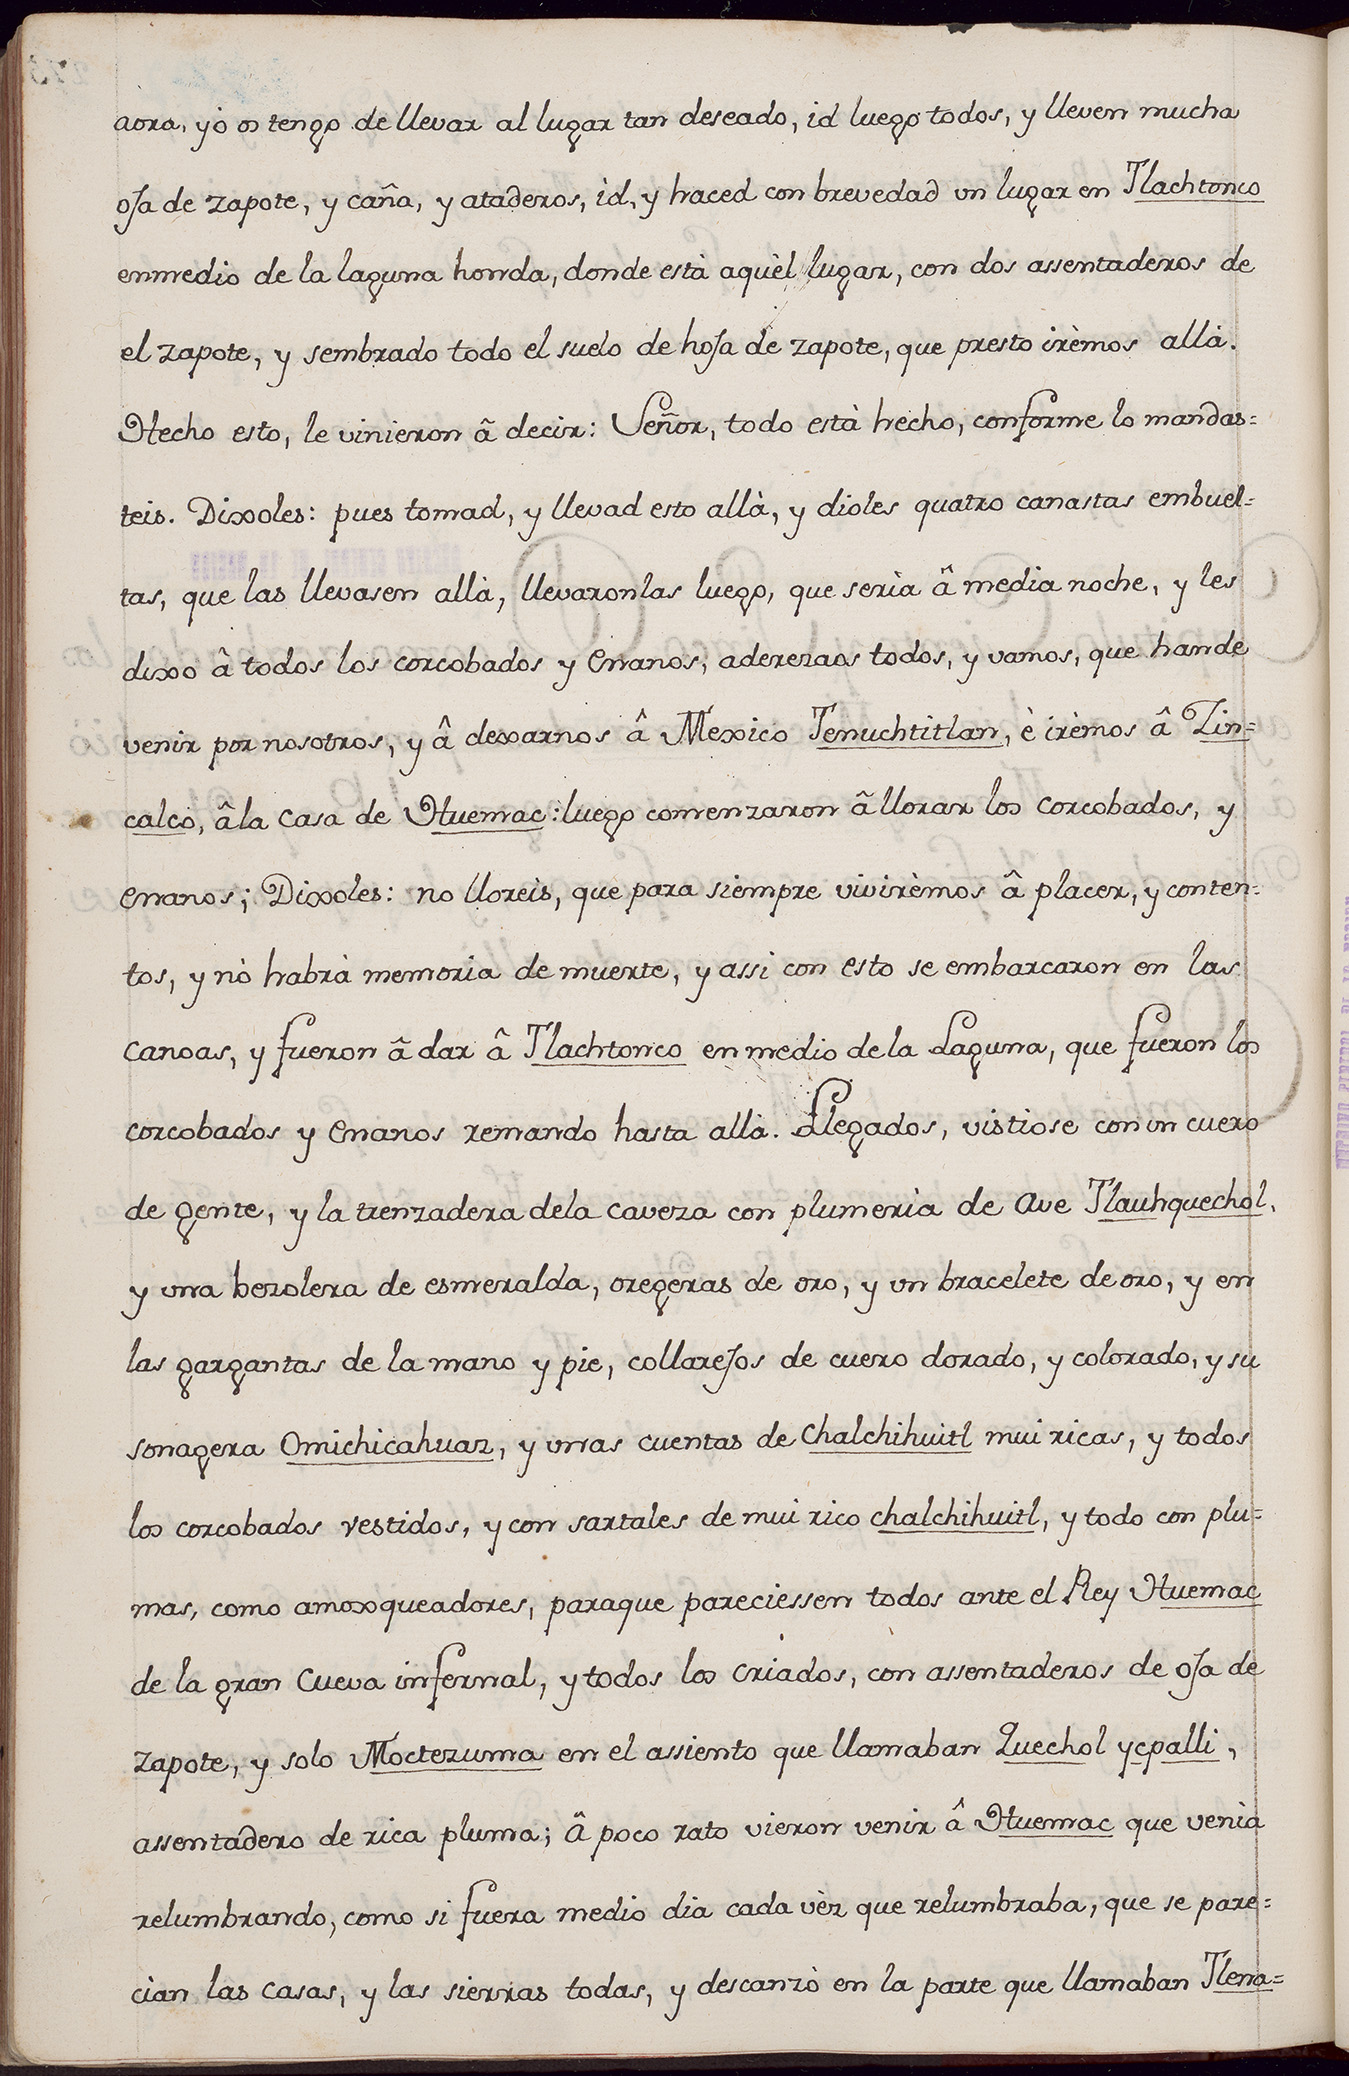 aora, yò os tengo de llevar al lugar tan deseado, id luego todos, y lleven mucha
oja de zapote, y caña, y ataderos, id, y haced con brevedad un lugar en Tlachtonco
enmedio de la laguna honda, donde està aquèl lugar, con dos assentaderos de
el zapote, y sembrado todo el suelo de hoja de zapote, que presto irèmos allà.
Hecho esto, le vinieron â decir: Señor, todo està hecho, conforme lo mandas=
teis. Dixoles: pues tomad, y llevad esto allà, y dioles quatro canastas embuel=
tas, que las llevasen allà, llevaronlas luego, que serìa â media noche, y les
dixo â todos los corcobados y enanos, aderezaos todos, y vamos, que hande
venir por nosotros, y â dexarnos â Mexico Tenuchtitlan, è irèmos â Zin=
calco, âla casa de Huemac: luego comenzaron â llorar los corcobados, y
enanos; Dixoles: no lloreis, que para siempre vivirèmos â placer, y conten=
tos, y nò habrà memoria de muerte, y assi con esto se embarcaron en las
canoas, y fueron â dar â Tlachtonco en medio de la Laguna, que fueron los
corcobados y enanos remando hasta allà. Llegados, vistiose con un cuero
de gente, y la trenzadera dela caveza con plumerìa de ave Tlauhquechol,
y una bezolera de esmeralda, oregeras de oro, y un bracelete de oro, y en
las gargantas de la mano y pie, collarejos de cuero dorado, y colorado, y su
sonagera Omichicahuaz, y unas cuentas de chalchihuitl mui ricas, y todos
los corcobados vestidos, y con sartales de mui rico chalchihuitl, y todo con plu=
mas, como amoxqueadores, paraque pareciessen todos ante el Rey Huemac
de la gran Cueva infernal, y todos los criados, con assentaderos de oja de
zapote, y solo Moctezuma en el assiento que llamaban Quechol ycpalli,
assentadero de rica pluma; â poco rato vieron venir â Huemac que venìa
relumbrando, como si fuera medio dia cada vèz que relumbraba, que se pare=
cìan las casas, y las sierras todas, y descanzò en la parte que llamaban Tlena=